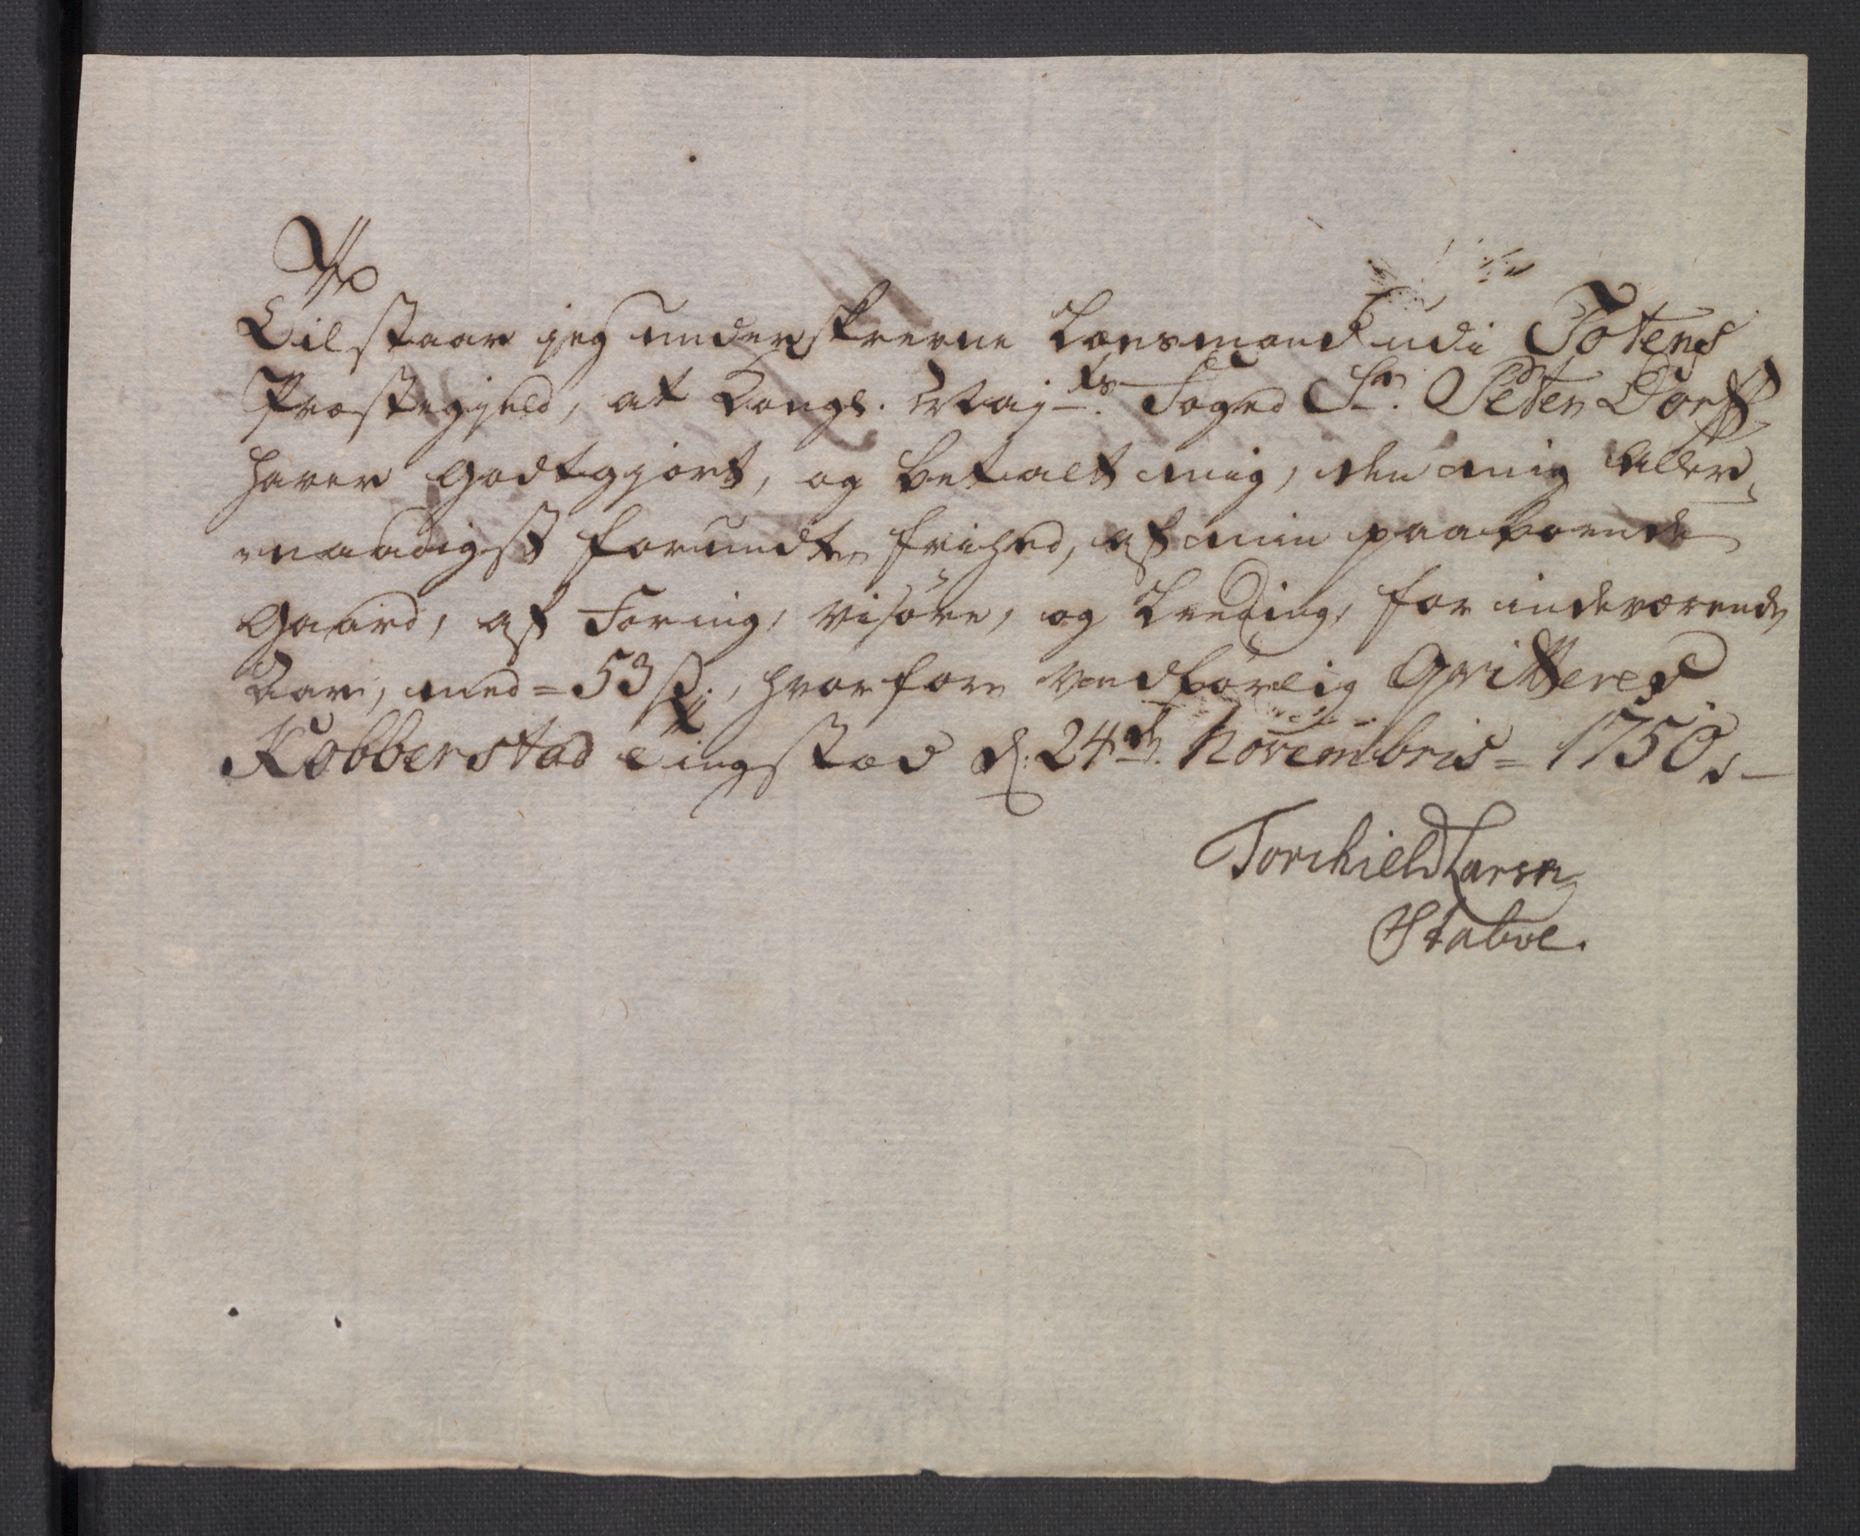 Tilstaar jeg underskrevne Lænsmand udi Totens
Præstegield, at Kongl. Maj-ts. Foged Sr. Peter Dorff
haver godtgjort, og betalt mig, den mig aller-
naadigst forundte frihed, af min paaboende
Gaard, af Foring, visøre, og Leeding, for indeværende
Aar, med = 53 ß., hvorfore vedbørlig Qvitteres
Kobberstad Tingstæd d: 24de. Novembris = 1750.
Torchield Larsn
Staboe.